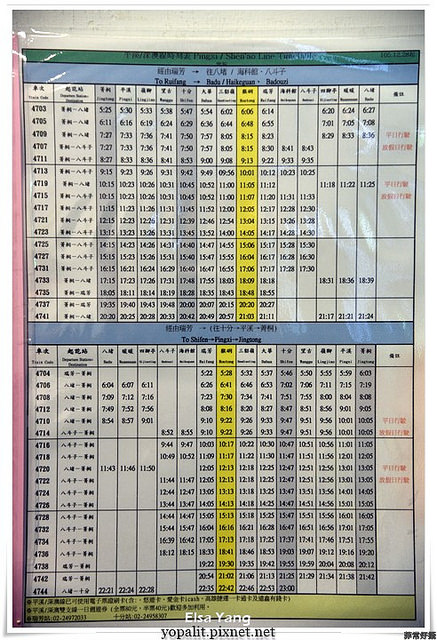 平溪/深澳線時刻表 Pingxi / Shen'ao Line Timetable
經由瑞芳 → 往八堵 / 海科館、八斗子
To Ruifang → Badu / Haikeguan、Badouzi
車次 起訖站 菁桐 平溪 嶺腳 望古 十分 大華 三貂嶺 猴硐 瑞芳 海科館 八斗子 四腳亭 暖暖 八堵 備註
4703 菁桐─八堵 5:25 5:30 5:33 5:38 5:47 5:54 6:02 6:06 6:14 6:20 6:24 6:27
4705 菁桐─八堵 6:11 6:16 6:19 6:24 6:29 6:36 6:44 6:48 6:55 7:01 7:05 7:08
4709 菁桐─八堵 7:27 7:33 7:36 7:41 7:50 7:57 8:05 8:15 8:23 8:29 8:33 8:36 平日行駛
4707 菁桐─八斗子 7:27 7:33 7:36 7:41 7:50 7:57 8:05 8:15 8:30 8:41 8:43 放假日行駛
4711 菁桐─八斗子 8:27 8:33 8:36 8:41 8:53 9:00 9:08 9:13 9:22 9:33 9:35
4713 菁桐─八斗子 9:15 9:23 9:26 9:31 9:42 9:49 09:56 10:01 10:12 10:23 10:25
4719 菁桐─八堵 10:15 10:23 10:26 10:31 10:45 10:52 11:00 11:05 11:12 11:18 11:22 11:25 平日行駛
4715 菁桐─八斗子 10:15 10:23 10:26 10:31 10:45 10:52 11:00 11:07 11:20 11:31 11:33 放假日行駛
4717 菁桐─八斗子 11:15 11:23 11:26 11:31 11:45 11:52 12:00 12:05 12:17 12:28 12:30
4721 菁桐─八斗子 12:15 12:23 12:26 12:31 12:39 12:46 12:54 13:04 13:15 13:26 13:28
4723 菁桐─八斗子 13:15 13:23 13:26 13:31 13:45 13:52 14:00 14:05 14:17 14:28 14:30
4725 菁桐─八斗子 14:15 14:23 14:26 14:31 14:40 14:47 14:55 15:06 15:17 15:28 15:30
4727 菁桐─八斗子 15:15 15:23 15:26 15:31 15:40 15:47 15:55 16:04 16:17 16:28 16:30
4731 菁桐─八斗子 16:15 16:21 16:24 16:29 16:40 16:47 16:55 17:06 17:17 17:28 17:30
4733 菁桐─八堵 17:15 17:23 17:26 17:31 17:48 17:55 18:03 18:09 18:18 18:31 18:36 18:39
4735 菁桐─瑞芳 18:05 18:11 18:14 18:19 18:28 18:35 18:43 18:48 18:55
4737 菁桐─瑞芳 19:35 19:40 19:43 19:48 20:00 20:07 20:15 20:20 20:27
4741 菁桐─八堵 20:20 20:25 20:28 20:33 20:42 20:49 20:57 21:03 21:11 21:17 21:21 21:24
經由瑞芳 → (往十分→平溪→菁桐)
To Shifen→Pingxi→Jingtong
車次 起訖站 八堵 暖暖 四腳亭 八斗子 海科館 瑞芳 猴硐 三貂嶺 大華 十分 望古 嶺腳 平溪 菁桐 備註
4704 瑞芳─菁桐 5:22 5:28 5:32 5:37 5:46 5:50 5:55 5:59 6:03
4706 八堵─菁桐 6:04 6:07 6:11 6:26 6:41 6:46 6:53 7:02 7:06 7:11 7:15 7:19
4708 八堵─菁桐 7:09 7:12 7:16 7:23 7:30 7:34 7:41 7:51 7:55 8:00 8:04 8:08
4712 八堵─菁桐 7:49 7:52 7:56 8:08 8:16 8:20 8:27 8:47 8:51 8:56 9:01 9:05
4710 八堵─菁桐 8:54 8:57 9:01 9:10 9:22 9:26 9:33 9:47 9:51 9:56 10:01 10:05 平日行駛
4714 八斗子─菁桐 8:52 8:55 9:10 9:22 9:26 9:33 9:47 9:51 9:56 10:01 10:05 放假日行駛
4716 八斗子─菁桐 9:44 9:47 10:03 10:17 10:22 10:30 10:47 10:51 10:56 11:01 11:05
4718 八斗子─菁桐 10:49 10:52 11:09 11:17 11:22 11:30 11:47 11:51 11:56 12:01 12:05
4720 八堵─菁桐 11:43 11:46 11:50 12:05 12:13 12:18 12:25 12:47 12:51 12:56 13:01 13:05 平日行駛
4722 八斗子─菁桐 11:44 11:47 12:05 12:13 12:18 12:25 12:47 12:51 12:56 13:01 13:05 放假日行駛
4724 八斗子─菁桐 12:44 12:47 13:05 13:13 13:18 13:25 13:47 13:51 13:56 14:01 14:05
4726 八斗子─菁桐 13:44 13:47 14:05 14:13 14:18 14:25 14:47 14:51 14:56 15:01 15:05
4728 八斗子─菁桐 14:44 14:47 15:05 15:13 15:18 15:25 15:47 15:51 15:56 16:01 16:05
4732 八斗子─菁桐 15:44 15:47 16:04 16:16 16:21 16:28 16:47 16:51 16:56 17:01 17:05
4734 八斗子─菁桐 16:39 16:42 17:05 17:13 17:18 17:25 17:37 17:41 17:46 17:51 17:55
4736 八斗子─菁桐 18:12 18:15 18:33 18:41 18:46 18:53 19:03 19:07 19:12 19:16 19:20
4738 瑞芳─菁桐 19:22 19:30 19:35 19:42 19:55 19:59 20:04 20:08 20:12
4742 瑞芳─菁桐 20:54 21:02 21:06 21:13 21:25 21:29 21:34 21:38 21:42
4744 八堵─十分 22:21 22:24 22:28 22:35 22:42 22:46 22:53 23:00
Elsa Yang
yopalit.pixnet.net
非常好癮